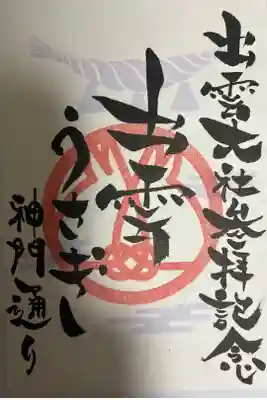 出雲大社参拝記念
出雲
うさぎし
神門通り